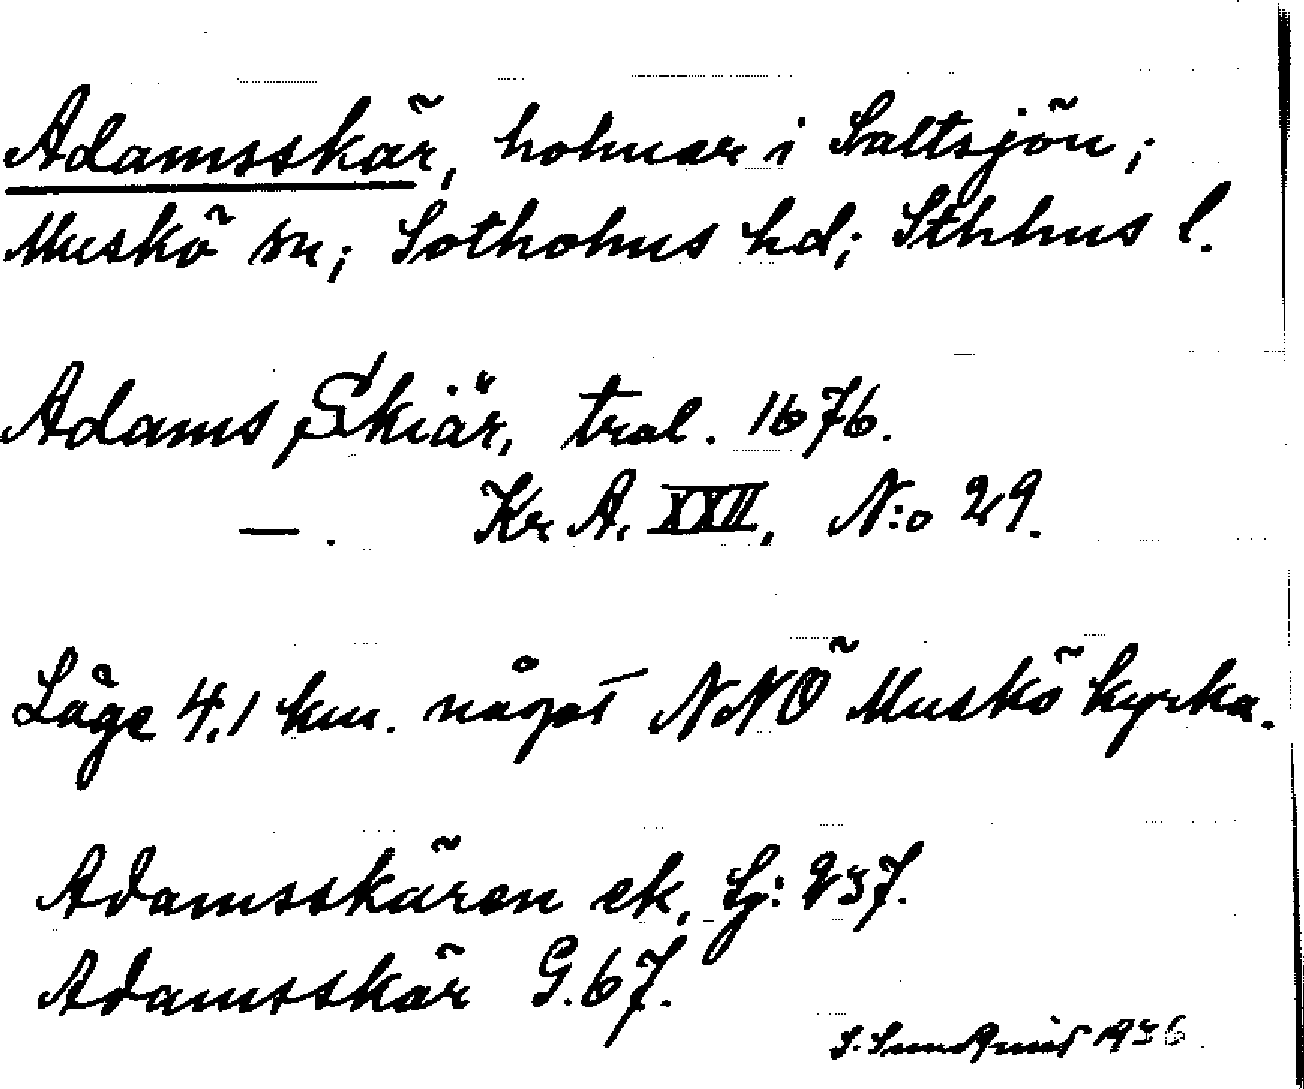 Adamsskär, holmar i Saltsjön;
Muskö sn; Sotholms hd; Sthlms l.
Adams Skiär, tral. 1676.
—. Kr A. XXII, N:o 29.
Läge 4,1 km. något NNÖ Muskö kyrka.
Adamsskären ek, Sj: 237.
Adamsskär G. 67.
S. Sundquist 1936